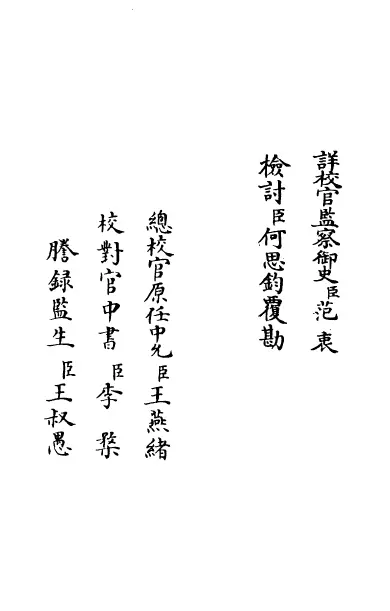 詳校官監察御史臣范衷
檢討臣何思鈞覆勘
總校官原任中允臣王燕緒
校對官中書臣李楘
謄録監生臣王叔愚